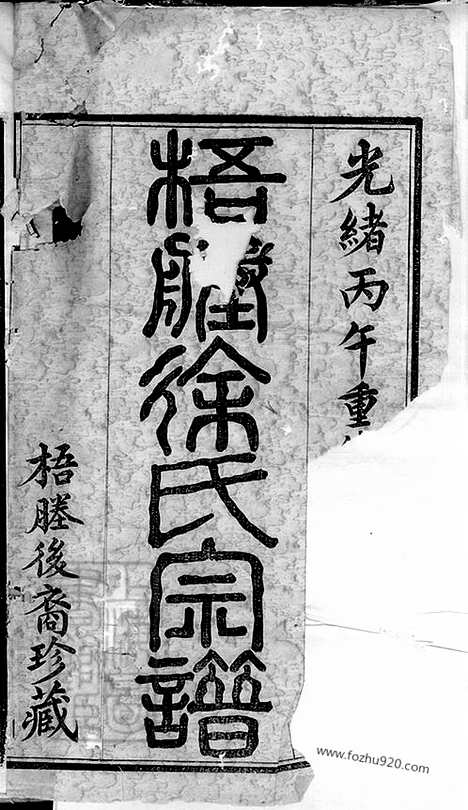 光緒丙午重
梧塍徐氏宗譜
梧塍後裔珍藏
www.fozhu920.com